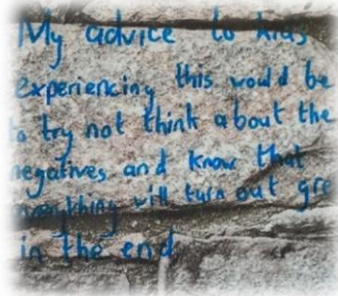 My advice to kids
experiencing this would be
to try not think about the
negatives and know that
everything will turn out gre
in the end